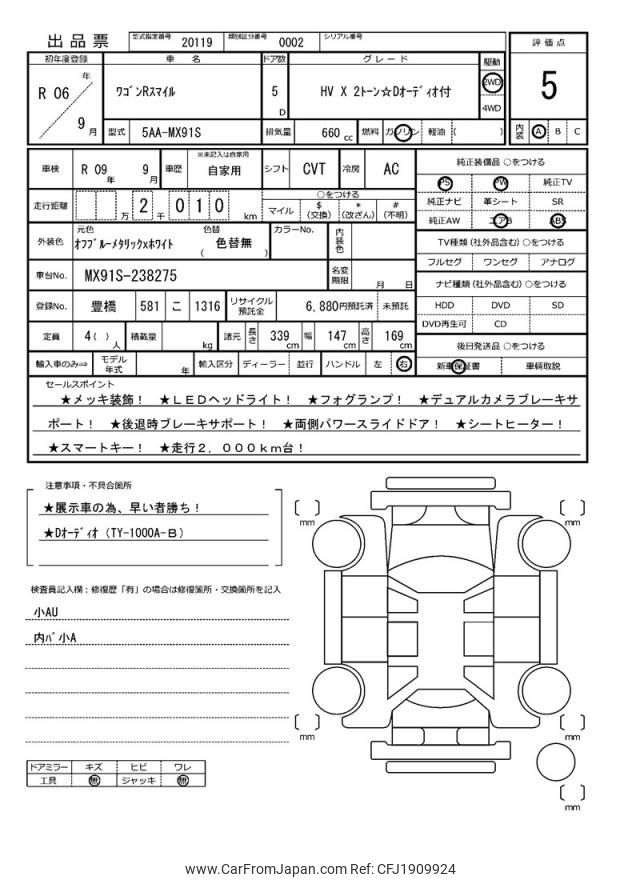 出品票 型式指定番号 20119 類別区分番号 0002 シリアル番号
評価点
5
内装 A B C
初年度登録 車名 ドア数 グレード 駆動
R 06 年 9 月
ワゴンRスマイル 5 D HV X 2トーン☆Dオーディオ付 2WD 4WD
型式 5AA-MX91S 排気量 660 cc 燃料 ガソリン 軽油 ( )
車検 R 09 年 9 月 車歴 ※未記入は自家用 自家用 シフト CVT 冷房 AC
走行距離 万 2 千 0 1 0 km
○をつける
マイル $ (交換) * (改ざん) # (不明)
外装色 元色 オフブルーメタリックxホワイト 色替 ( 色替無 ) カラーNo. 内装色
車台No. MX91S-238275 名変期限 月 日
登録No. 豊橋 581 こ 1316 リサイクル預託金 6,880円預託済 未預託
定員 4( ) 人 積載量 kg 諸元 長さ 339 cm 幅 147 cm 高さ 169 cm
輸入車のみ⇒ モデル年式 年 輸入区分 ディーラー 並行 ハンドル 左 右
純正装備品 ○をつける
PS PW 純正TV
純正ナビ 革シート SR
純正AW エアB ABS
TV種類(社外品含む)○をつける
フルセグ ワンセグ アナログ
ナビ種類(社外品含む)○をつける
HDD DVD SD
DVD再生可 CD
後日発送品 ○をつける
新車保証書 車輌取説
セールスポイント
★メッキ装飾! ★LEDヘッドライト! ★フォグランプ! ★デュアルカメラブレーキサ
ポート! ★後退時ブレーキサポート! ★両側パワースライドドア! ★シートヒーター!
★スマートキー! ★走行2,000km台!
注意事項・不具合箇所
★展示車の為、早い者勝ち!
★Dオーディオ(TY-1000A-B)
検査員記入欄:修復歴「有」の場合は修復箇所・交換箇所を記入
小AU
内バ小A
mm
mm
mm
mm
mm
ドアミラー キズ ヒビ ワレ
工具 無 ジャッキ 無
www.CarFromJapan.com Ref: CFJ1909924